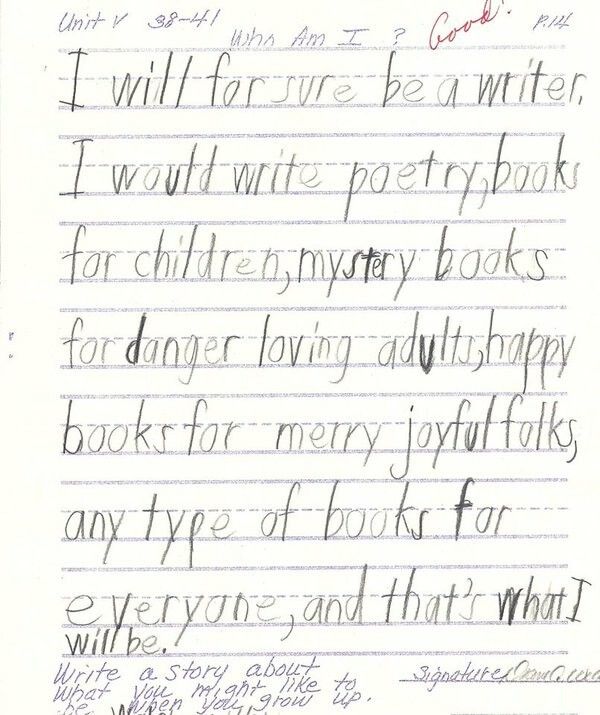 Unit V 38-41 P.14
Who Am I ? Good!
I will for sure be a writer.
I would write poetry, books
for children, mystery books
for danger loving adults, happy
books for merry joyful folks,
any type of books for
everyone, and that's what I
will be.
Write a story about
what you might like to
be when you grow up.
Signature